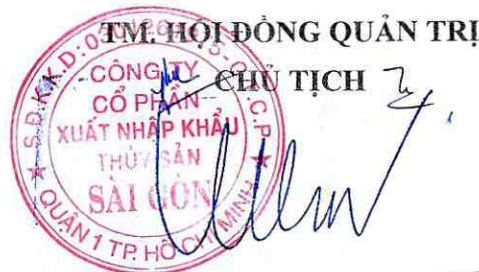 TM. HỘI ĐỒNG QUẢN TRỊ
CHỦ TỊCH
CÔNG TY
CỔ PHẦN
XUẤT NHẬP KHẨU
THỦY SẢN
SÀI GÒN
QUẬN 1 TP. HỒ CHÍ MINH